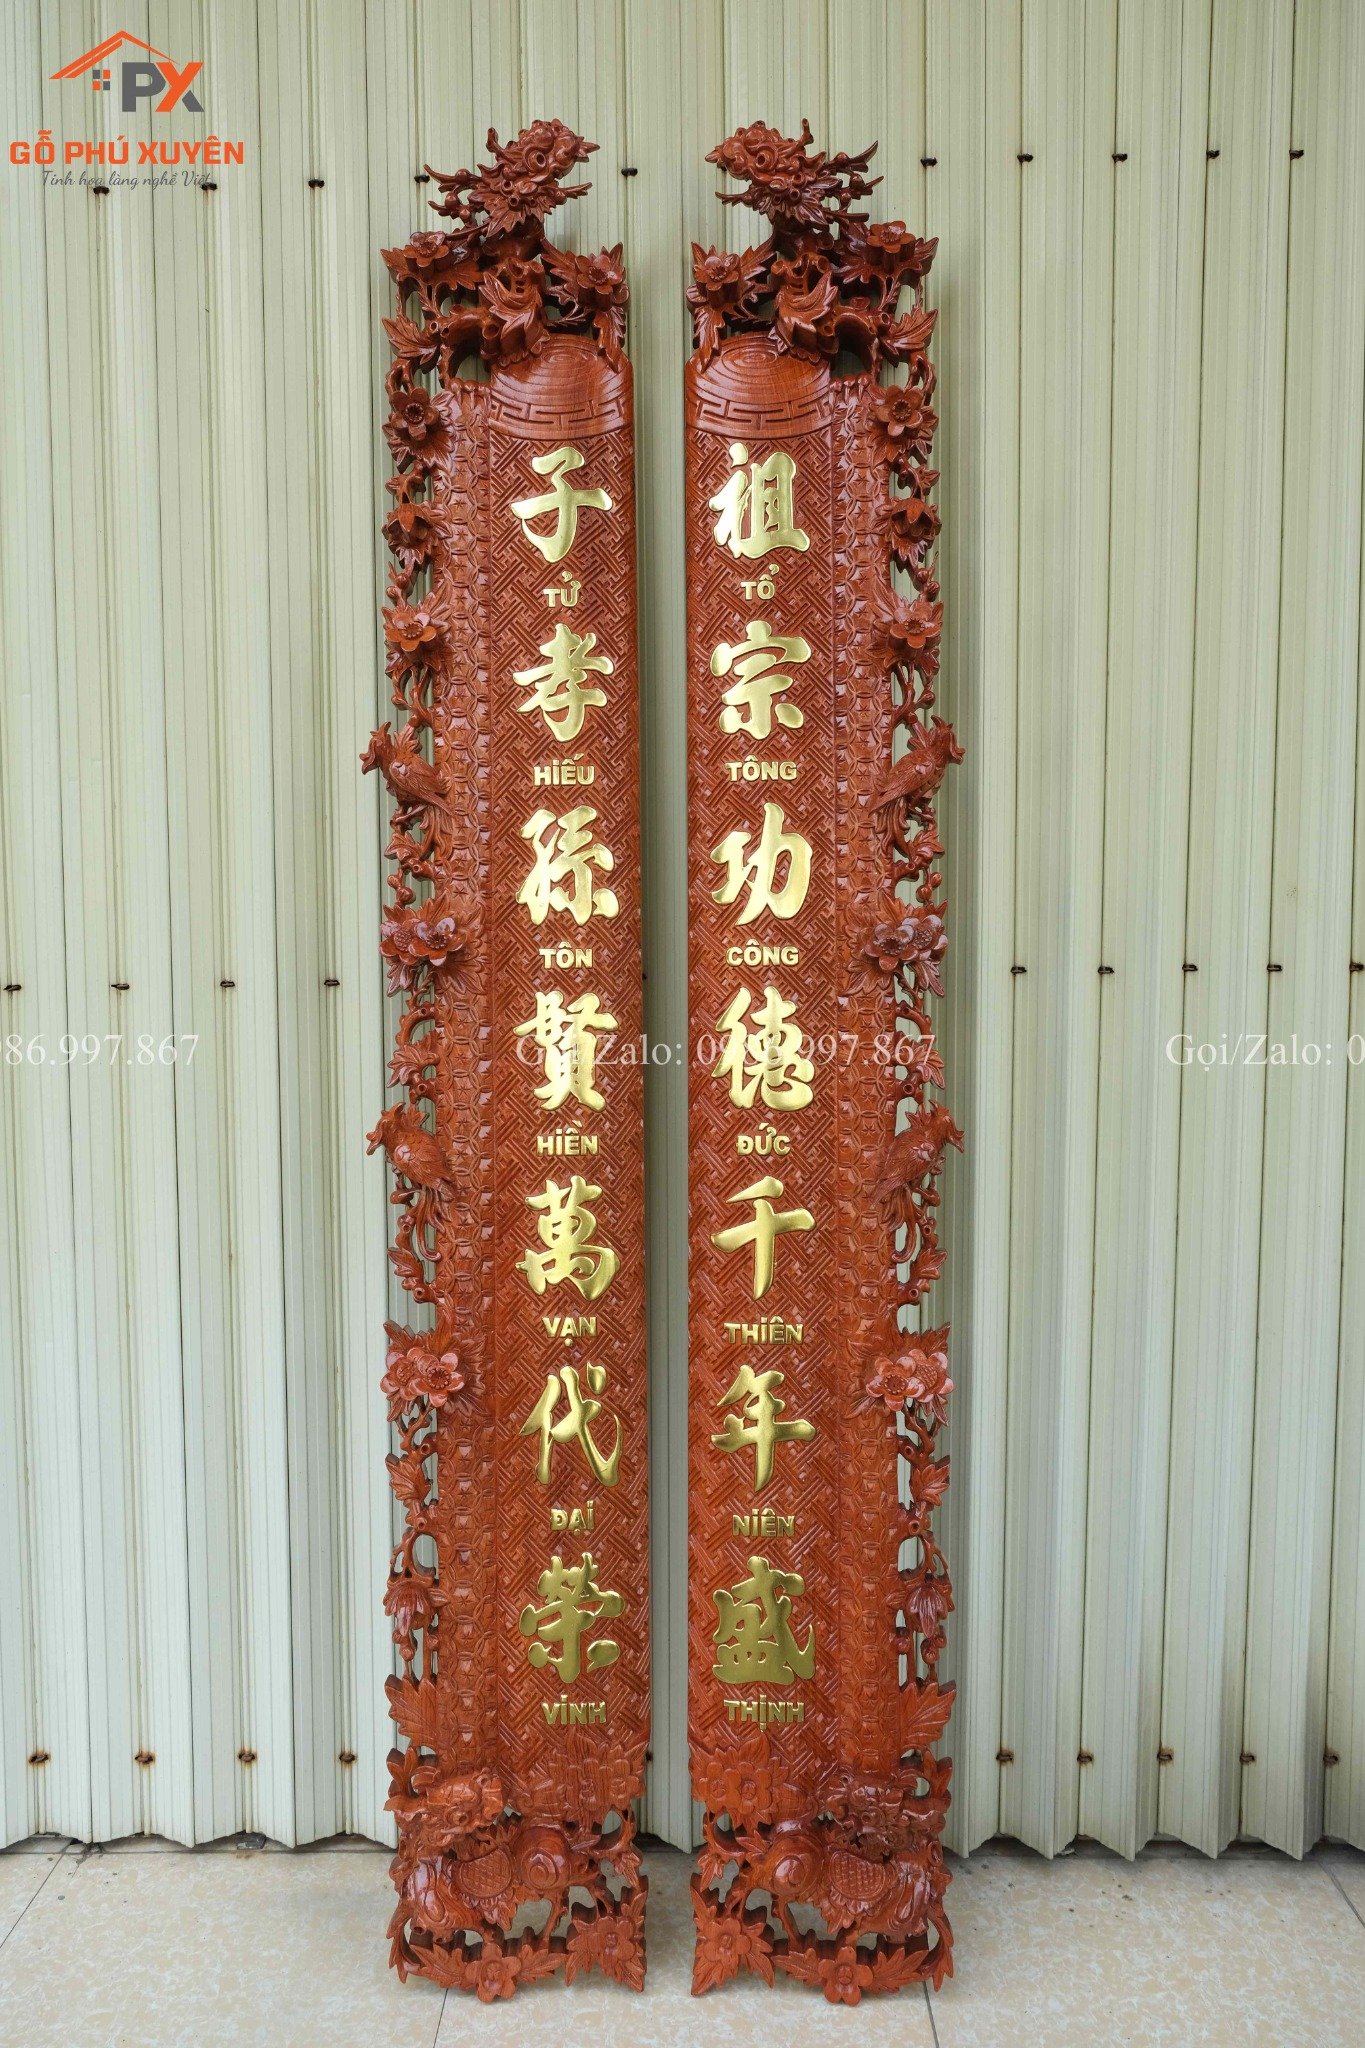 PX
GỖ PHÚ XUYÊN
Tinh hoa làng nghề Việt
祖
TỔ
宗
TÔNG
功
CÔNG
德
ĐỨC
千
THIÊN
年
NIÊN
盛
THỊNH
子
TỬ
孝
HIẾU
孫
TÔN
賢
HIỀN
萬
VẠN
代
ĐẠI
榮
VINH
986.997.867
Gọi/Zalo: 0986.997.867
Gọi/Zalo: 0